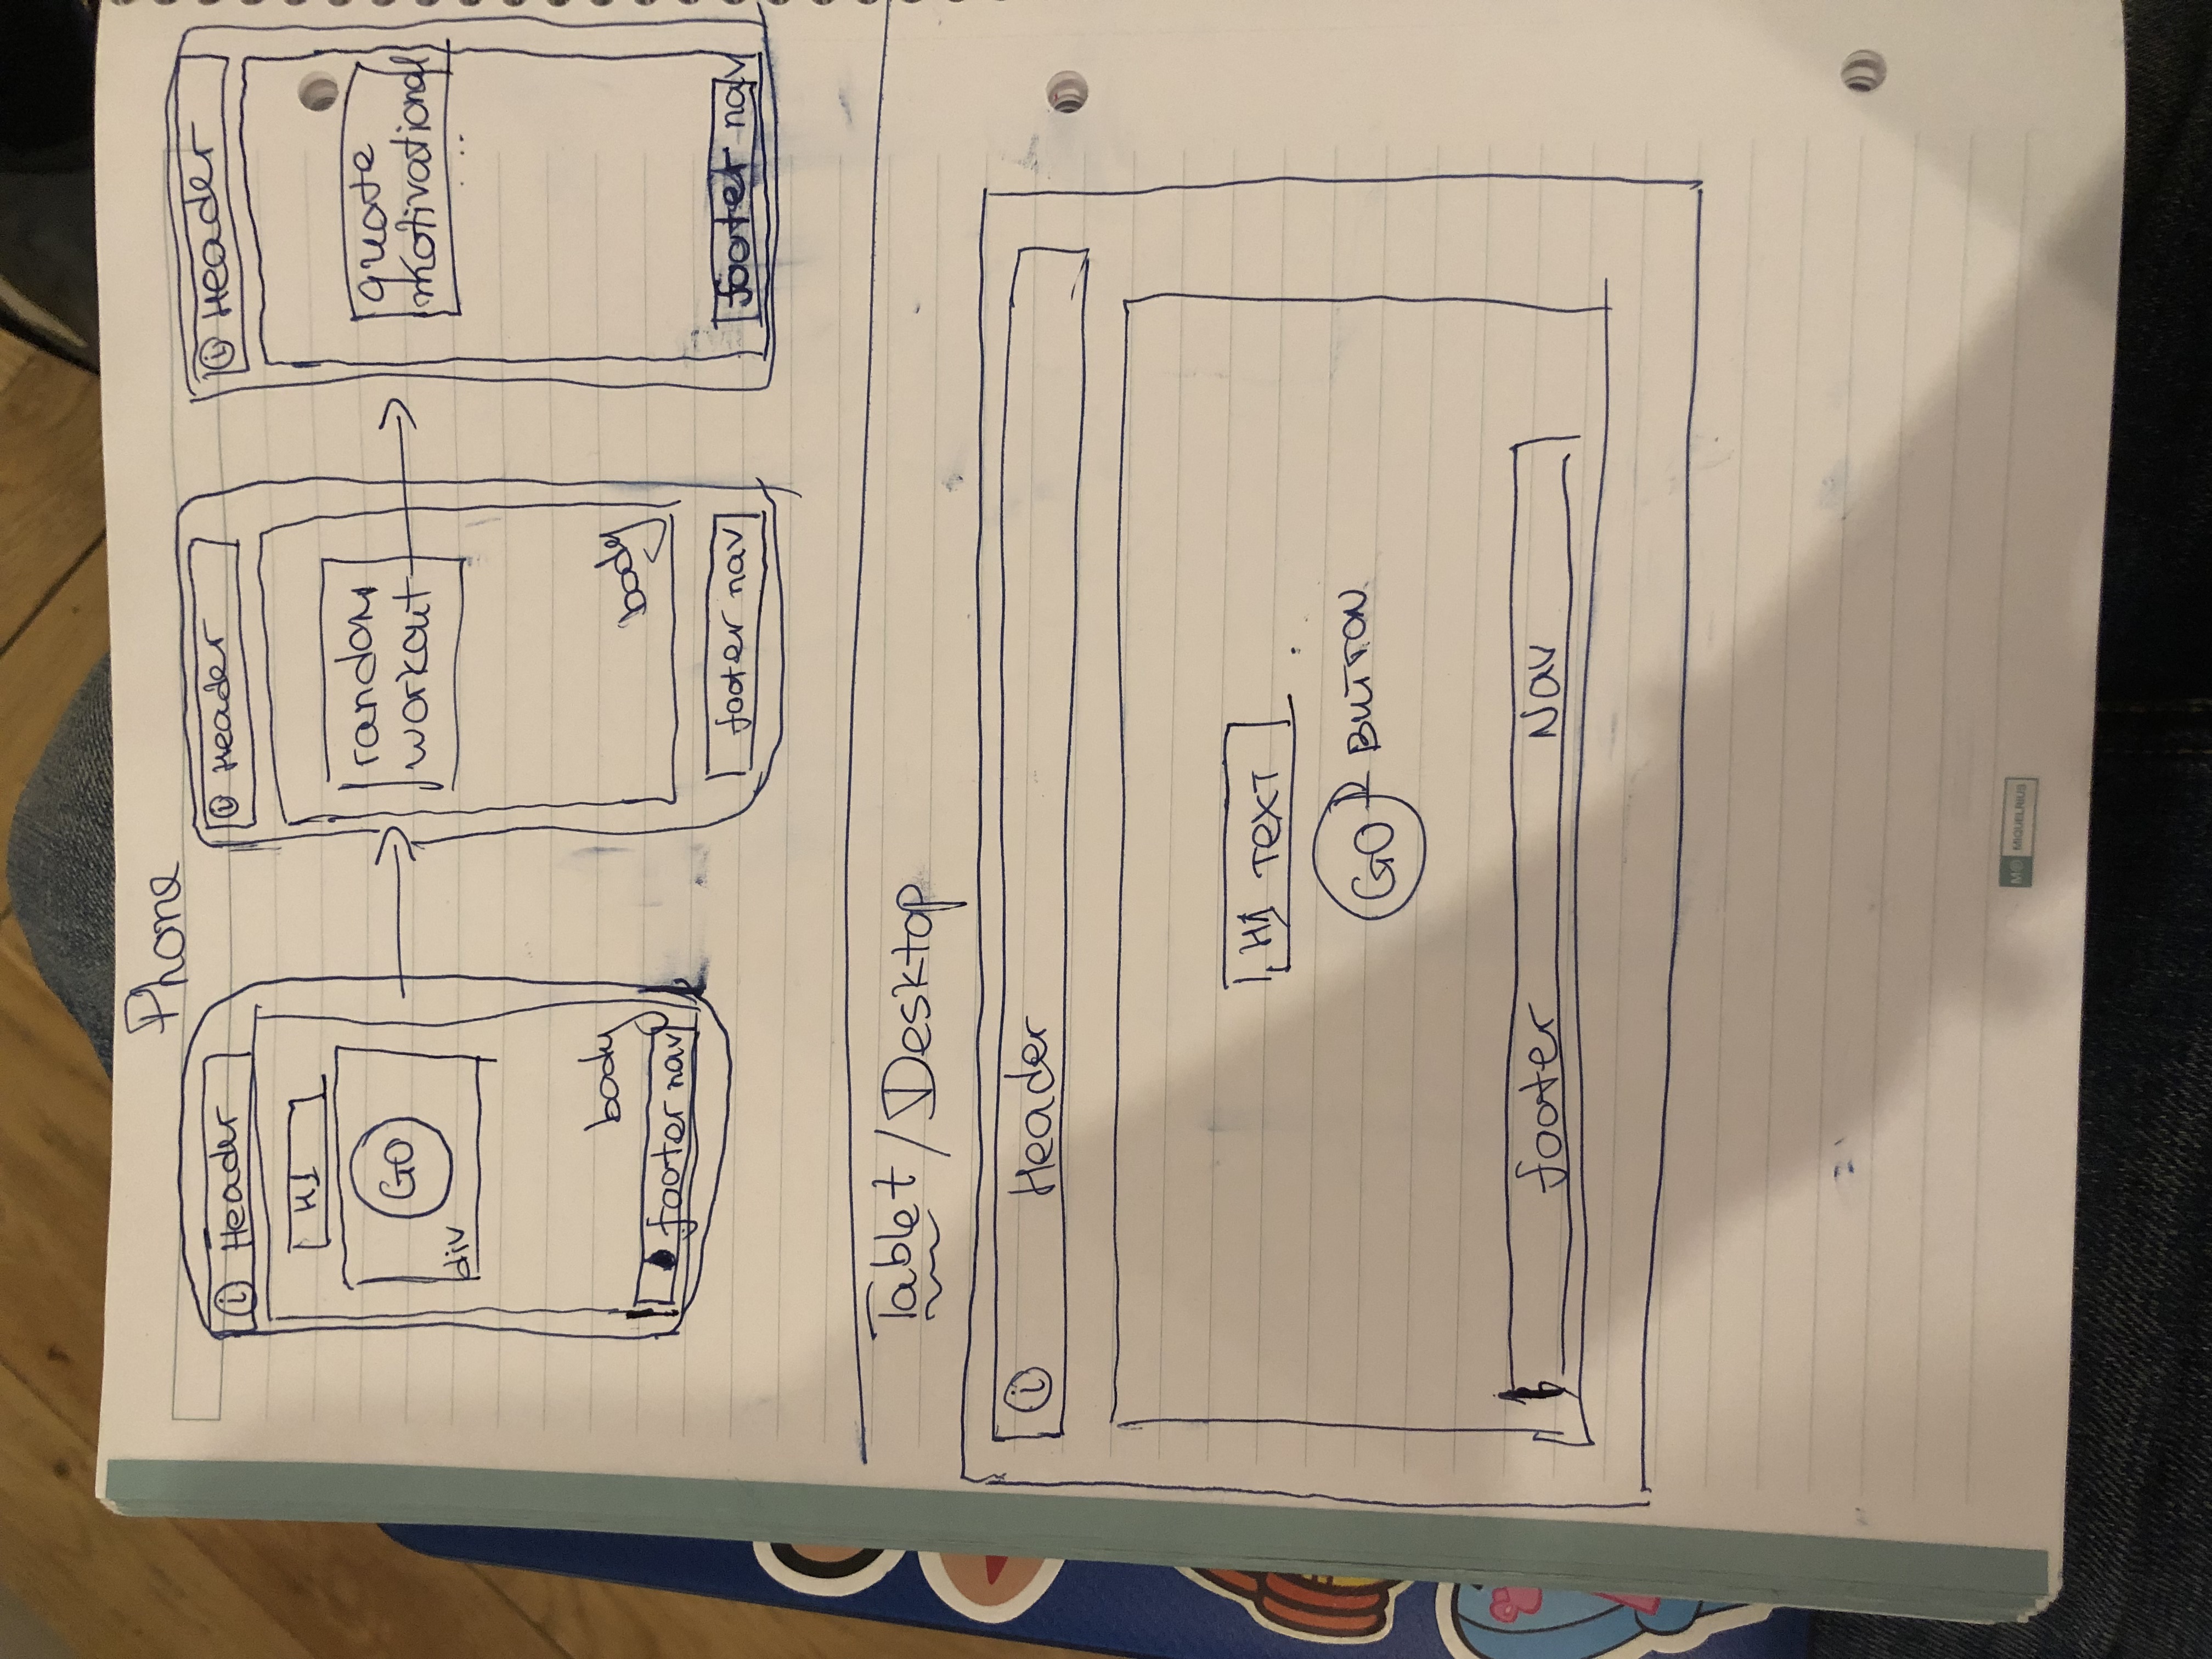 Phone
i Header
H1
GO
div
body
footer nav
i Header
random
workout
body
footer nav
i Header
quote
motivational
footer nav
Tablet / Desktop
i Header
H1 TEXT
GO BUTTON
footer Nav
MIQUELRIUS